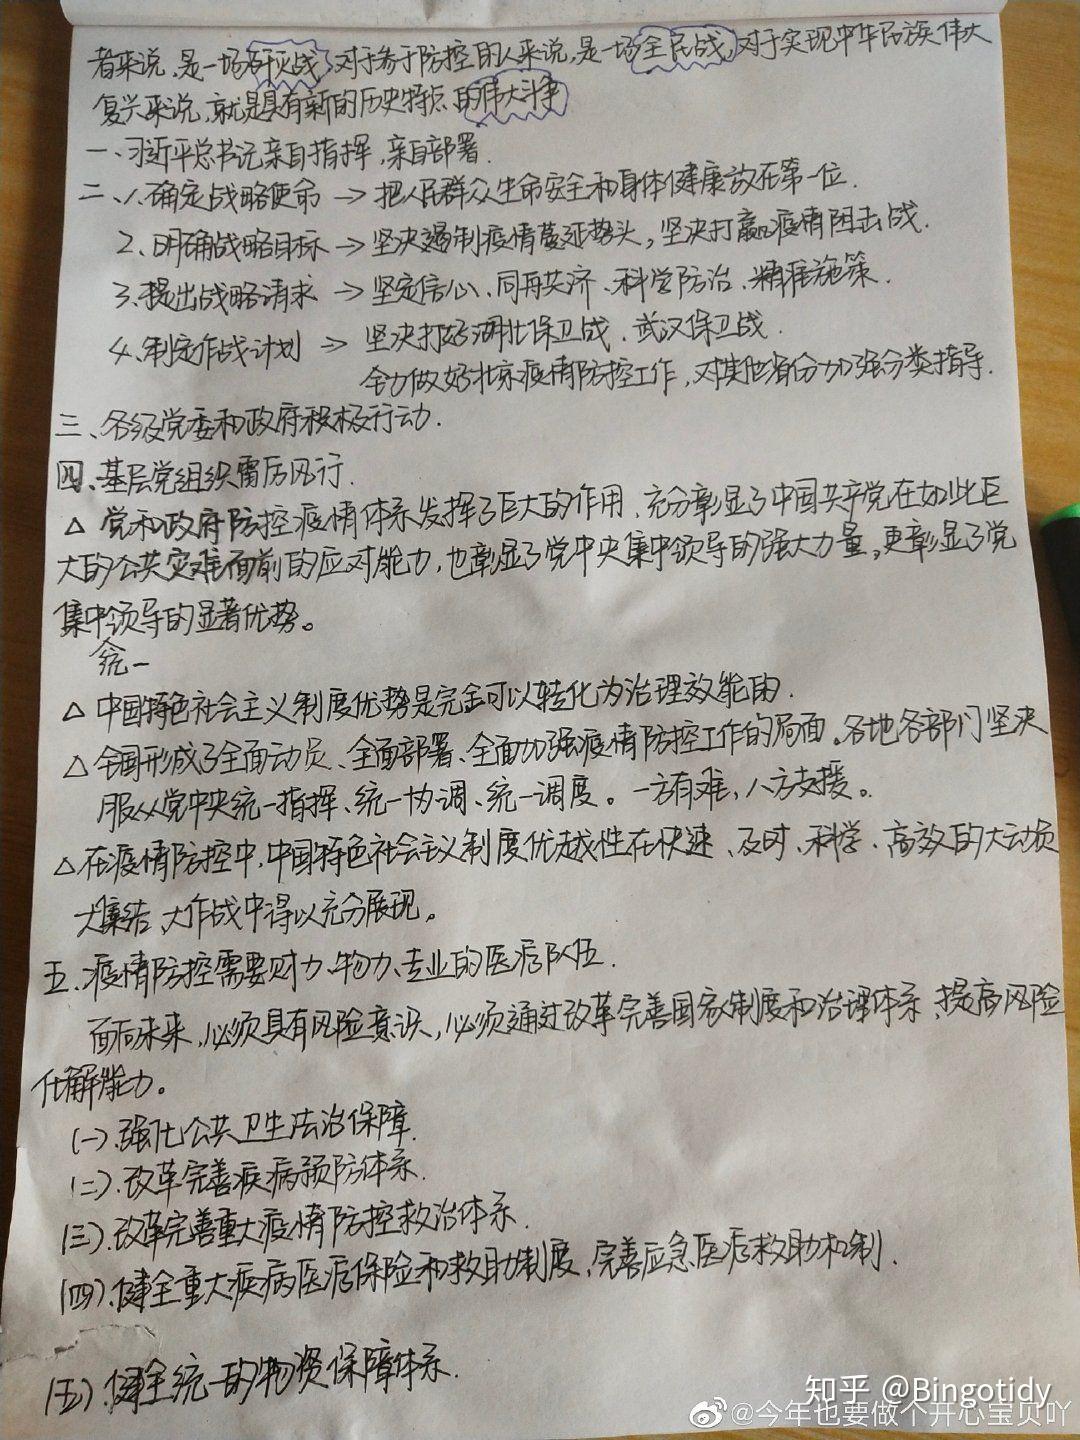 者来说,是一场歼灭战,对于参于防控的人来说,是一场全民战,对于实现中华民族伟大
复兴来说,就是具有新的历史特点的伟大斗争
一、习近平总书记亲自指挥,亲自部署.
二、1.确定战略使命 → 把人民群众生命安全和身体健康放在第一位.
2.明确战略目标 → 坚决遏制疫情蔓延势头,坚决打赢疫情阻击战.
3.提出战略请求 → 坚定信心、同舟共济、科学防治、精准施策.
4.制定作战计划 → 坚决打好湖北保卫战、武汉保卫战.
全力做好北京疫情防控工作,对其他省份加强分类指导.
三、各级党委和政府积极行动.
四、基层党组织雷厉风行.
△ 党和政府防控疫情体系发挥了巨大的作用、充分彰显了中国共产党在如此巨
大的公共灾难面前的应对能力,也彰显了党中央集中领导的强大力量,更彰显了党
集中领导的显著优势。
统一
△ 中国特色社会主义制度优势是完全可以转化为治理效能的.
△ 全国形成了全面动员、全面部署、全面加强疫情防控工作的局面。各地各部门坚决
服从党中央统一指挥、统一协调、统一调度。一方有难,八方支援。
△ 在疫情防控中,中国特色社会主义制度优越性在快速、及时、科学、高效的大动员
大集结、大作战中得以充分展现。
五、疫情防控需要财力、物力、专业的医疗队伍.
面向未来,必须具有风险意识、必须通过改革完善国家制度和治理体系、提高风险
化解能力。
(一).强化公共卫生法治保障.
(二).改革完善疾病预防体系.
(三).改革完善重大疫情防控救治体系.
(四).健全重大疾病医疗保险和救助制度、完善应急医疗救助机制.
(五).健全统一的物资保障体系.
知乎 @Bingotidy
@今年也要做个开心宝贝吖